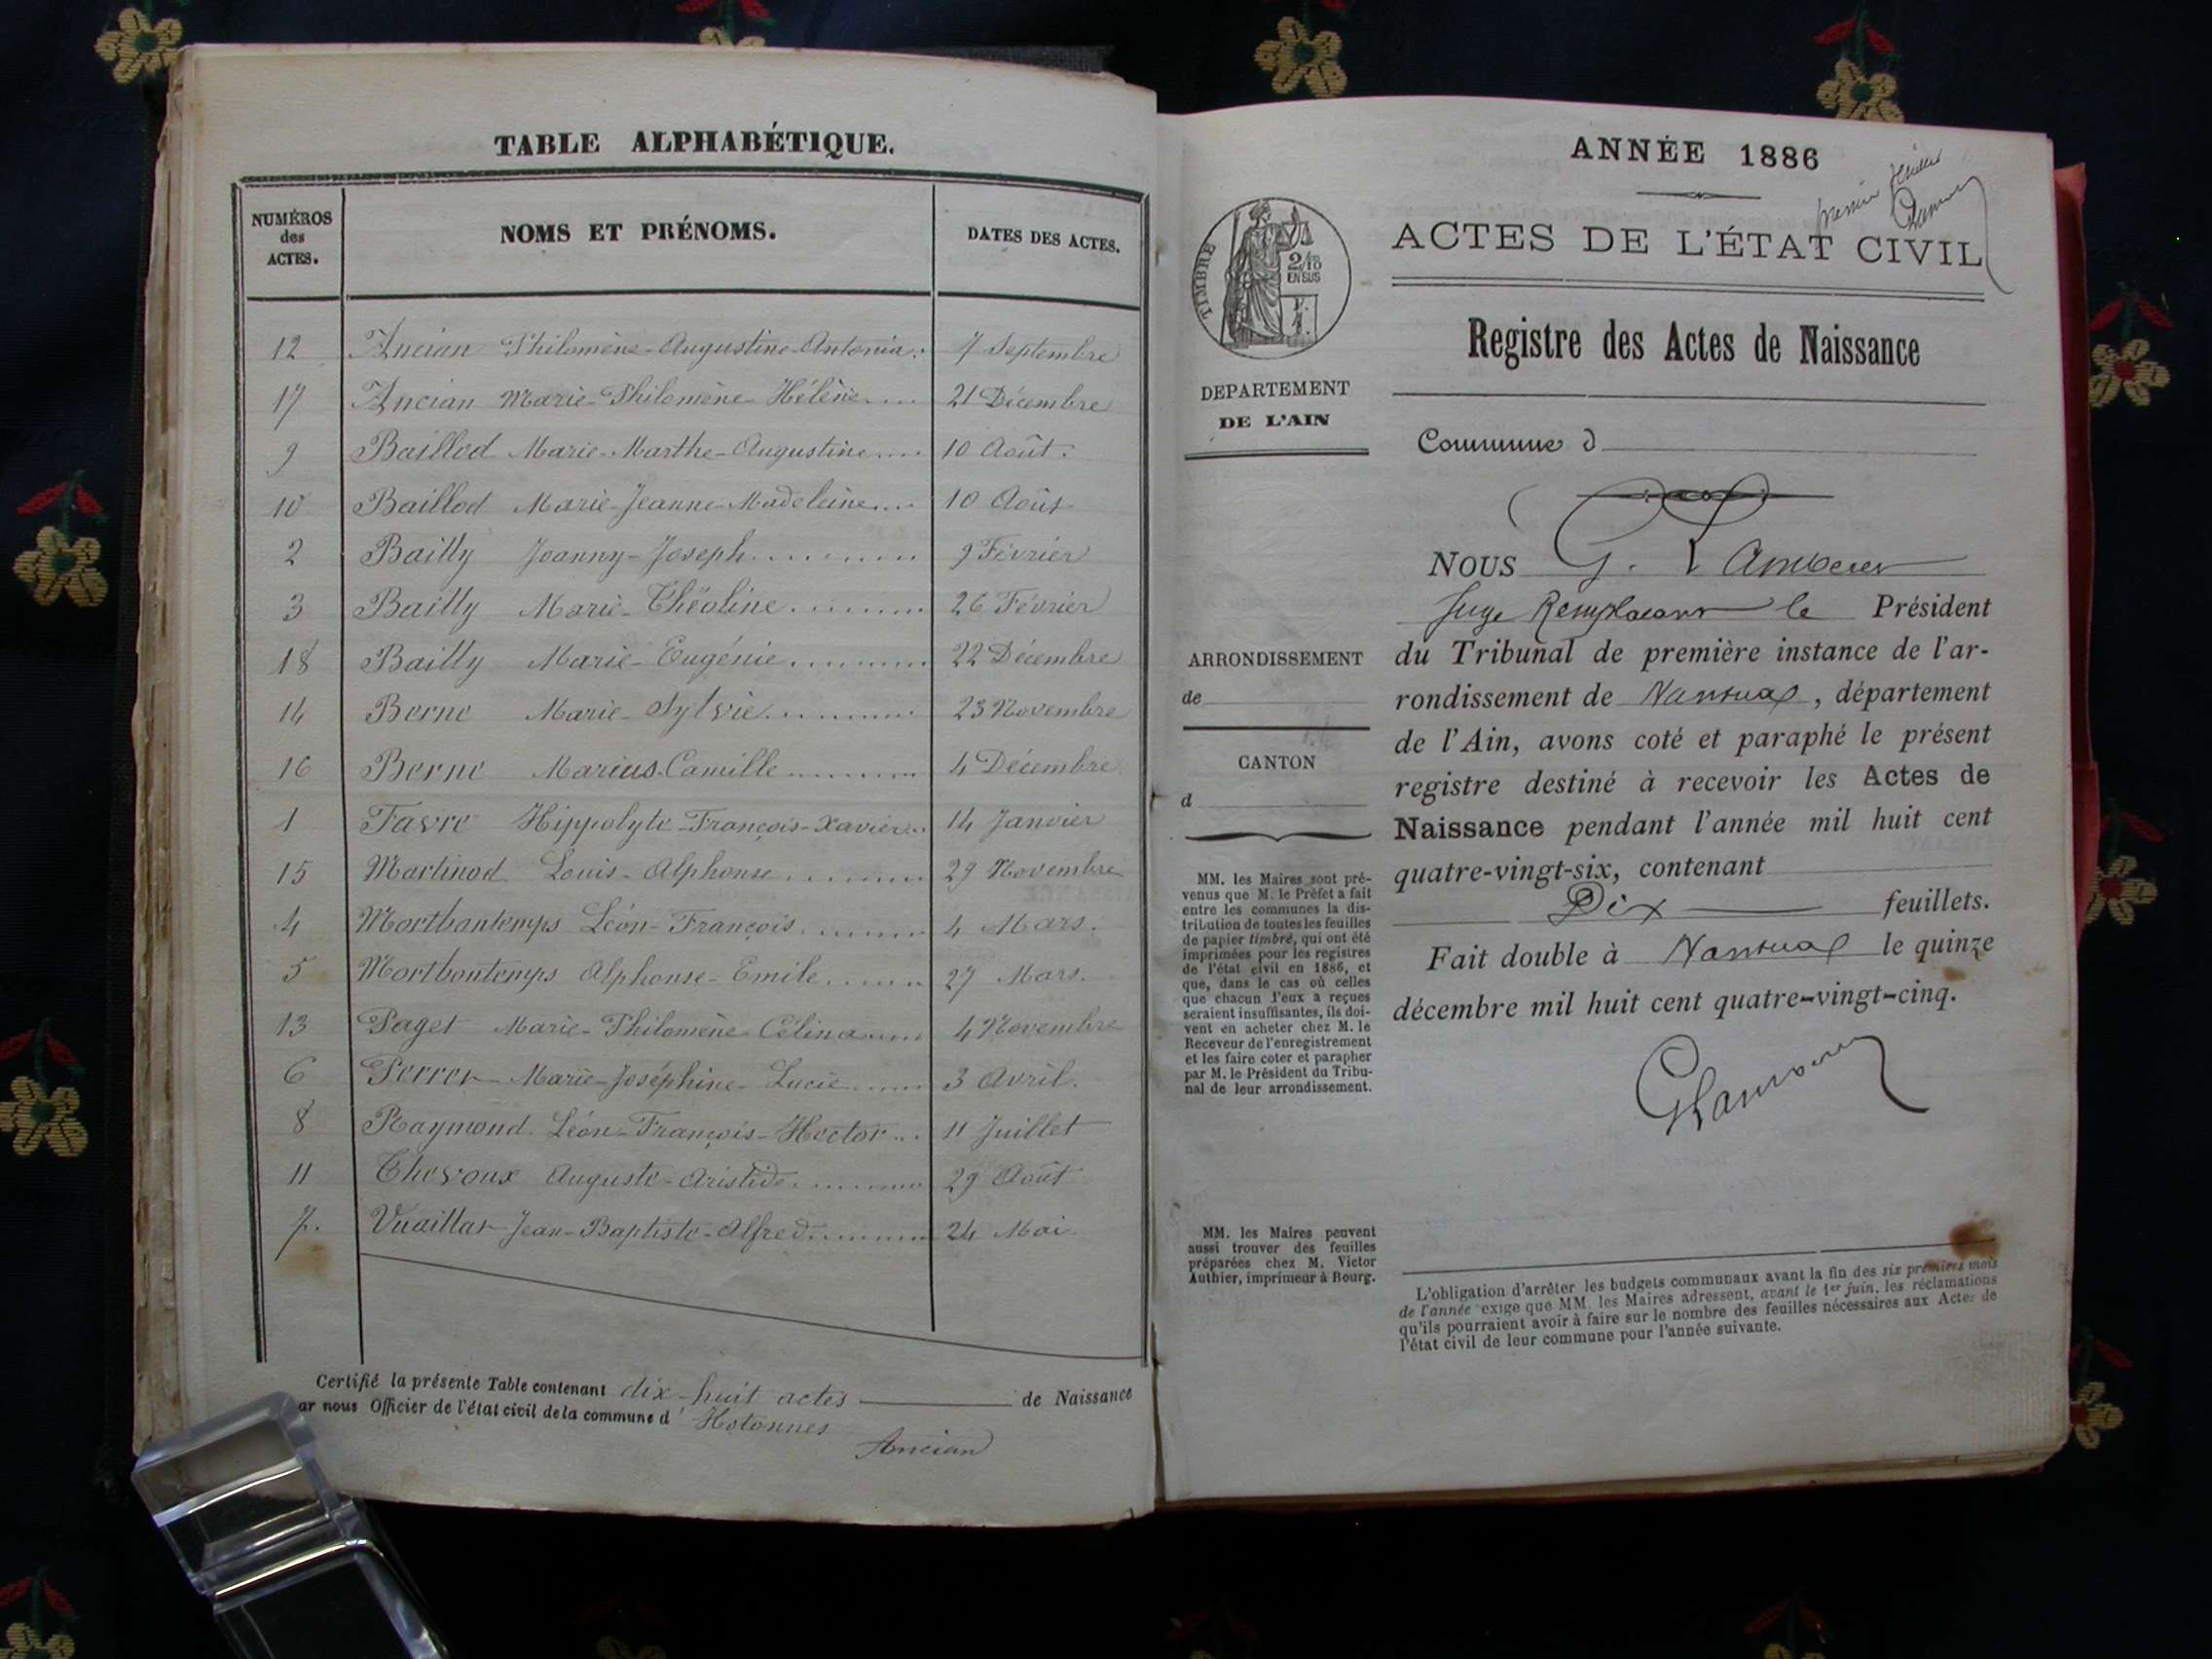 TABLE ALPHABÉTIQUE.
NUMÉROS des ACTES. NOMS ET PRÉNOMS. DATES DES ACTES.
12 Ancian Philomène-Augustine-Antonia. 7 Septembre
17 Ancian Marie-Philomène-Hélène.... 21 Décembre
9 Baillod Marie-Marthe-Augustine.... 10 Août.
10 Baillod Marie-Jeanne-Madeleine.... 10 Août
2 Bailly Joanny-Joseph.......... 9 Février
3 Bailly Marie-Théoline......... 26 Février
18 Bailly Marie-Eugénie.......... 22 Décembre
14 Berne Marie-Sylvie.......... 23 Novembre
16 Berne Marius-Camille.......... 4 Décembre
1 Favre Hippolyte-François-Xavier.. 14 Janvier
15 Martinod Louis-Alphonse.......... 29 Novembre
4 Mortbontemps Léon-François......... 4 Mars.
5 Mortbontemps Alphonse-Emile....... 27 Mars.
13 Paget Marie-Philomène-Célina..... 4 Novembre
6 Perret Marie-Joséphine-Lucie...... 3 Avril.
8 Raymond Léon-François-Hector... 11 Juillet
11 Thévoux Auguste-Aristide.......... 29 Août
7. Vuaillat Jean-Baptiste-Alfred.......... 24 Mai
Certifié la présente Table contenant dix-huit actes de Naissance
ar nous Officier de l'état civil de la commune d'Hotonnes
Ancian
ANNÉE 1886
premier
ACTES DE L'ÉTAT CIVIL
TIMBRE
2/10
EN SUS
Registre des Actes de Naissance
DEPARTEMENT
DE L'AIN
Commune d
NOUS G. Lambert
Juge Remplaçant le Président
du Tribunal de première instance de l'ar-
rondissement de Nantua, département
de l'Ain, avons coté et paraphé le présent
registre destiné à recevoir les Actes de
Naissance pendant l'année mil huit cent
quatre-vingt-six, contenant
Dix feuillets.
Fait double à Nantua le quinze
décembre mil huit cent quatre-vingt-cinq.
GLambert
ARRONDISSEMENT
de
CANTON
d
MM. les Maires sont pré-
venus que M. le Préfet a fait
entre les communes la dis-
tribution de toutes les feuilles
de papier timbré, qui ont été
imprimées pour les registres
de l'état civil en 1886, et
que, dans le cas où celles
que chacun d'eux a reçues
seraient insuffisantes, ils doi-
vent en acheter chez M. le
Receveur de l'enregistrement
et les faire coter et parapher
par M. le Président du Tribu-
nal de leur arrondissement.
MM. les Maires peuvent
aussi trouver des feuilles
préparées chez M. Victor
Authier, imprimeur à Bourg.
L'obligation d'arrêter les budgets communaux avant la fin des six premiers mois
de l'année exige que MM. les Maires adressent, avant le 1er juin, les réclamations
qu'ils pourraient avoir à faire sur le nombre des feuilles nécessaires aux Actes de
l'état civil de leur commune pour l'année suivante.